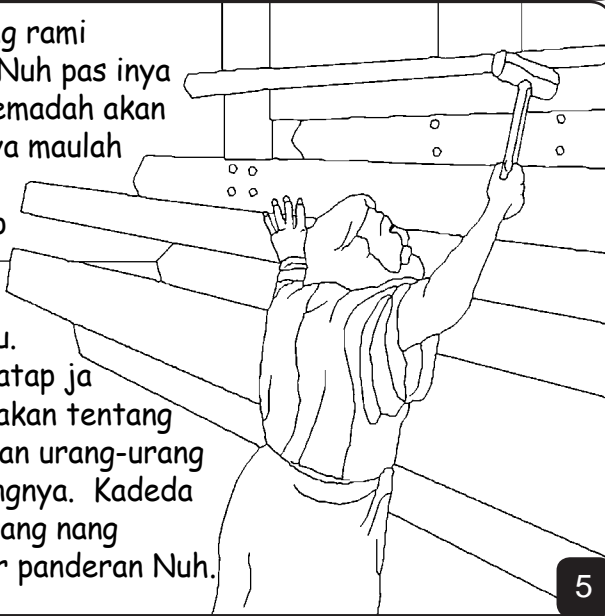 g rami
Nuh pas inya
emadah akan
ya maulah
u.
atap ja
akan tentang
an urang-urang
ngnya. Kadeda
ang nang
r panderan Nuh.
5